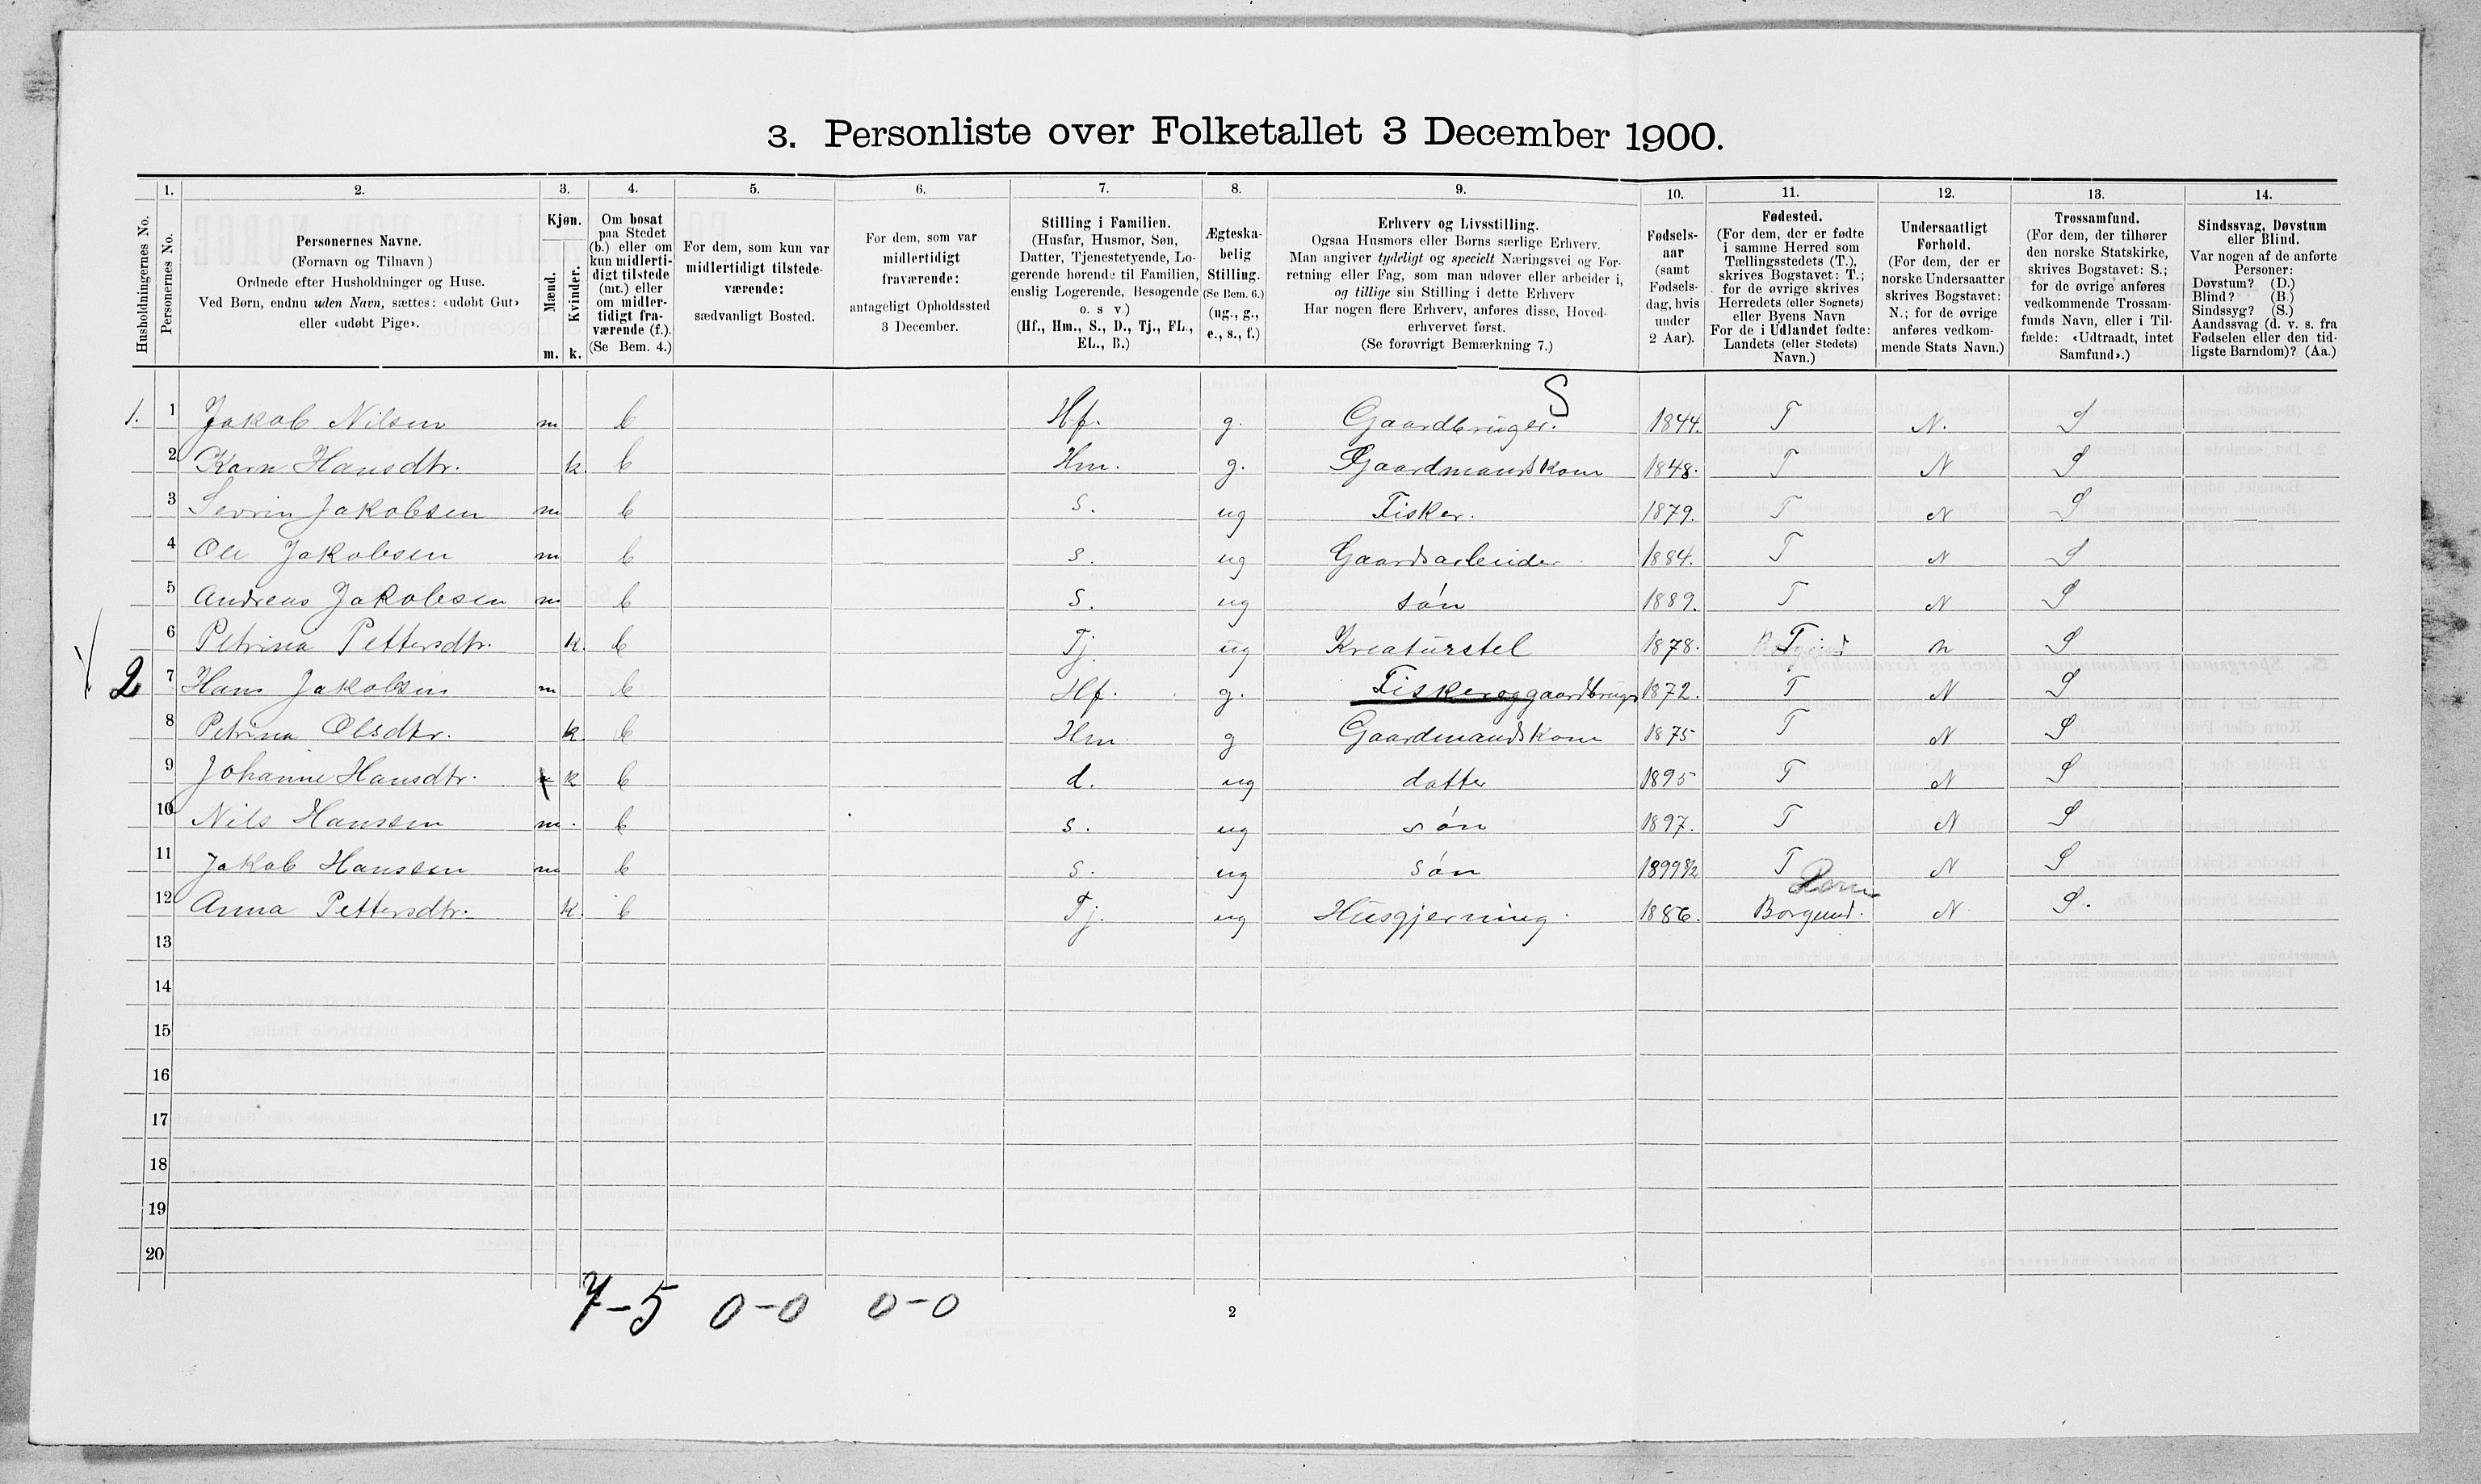 3. Personliste over Folketallet 3 December 1900.
1. 2. 3. 4. 5. 6. 7. 8. 9. 10. 11. 12. 13. 14.
Husholdningernes No.
Personernes No.
Personernes Navne.
(Fornavn og Tilnavn)
Ordnede efter Husholdninger og Huse.
Ved Børn, endnu uden Navn, sættes: «udøbt Gut»
eller «udøbt Pige».
Kjøn.
Mænd.
Kvinder.
m. k.
Om bosat
paa Stedet
(b.) eller om
kun midlerti-
digt tilstede
(mt.) eller
om midler-
tidigt fra-
værende (f.).
(Se Bem. 4.)
For dem, som kun var
midlertidigt tilstede-
værende:
sædvanligt Bosted.
For dem, som var
midlertidigt
fraværende:
antageligt Opholdssted
3 December.
Stilling i Familien.
(Husfar, Husmor, Søn,
Datter, Tjenestetyende, Lo-
gerende hørende til Familien,
enslig Logerende, Besøgende
o. s v.)
(Hf., Hm., S., D., Tj., FL.,
EL., B.)
Ægteska-
belig
Stilling.
(Se Bem. 6.)
(ug., g.,
e., s., f.)
Erhverv og Livsstilling.
Ogsaa Husmors eller Børns særlige Erhverv.
Man angiver tydeligt og specielt Næringsvei og For-
retning eller Fag, som man udøver eller arbeider i,
og tillige sin Stilling i dette Erhverv
Har nogen flere Erhverv, anføres disse, Hoved-
erhvervet først.
(Se forøvrigt Bemærkning 7.)
Fødsels-
aar
(samt
Fødsels-
dag, hvis
under
2 Aar).
Fødested.
(For dem, der er fødte
i samme Herred som
Tællingsstedets (T.),
skrives Bogstavet: T.;
for de øvrige skrives
Herredets (eller Sognets)
eller Byens Navn
For de i Udlandet fødte:
Landets (eller Stedets)
Navn.)
Undersaatligt
Forhold.
(For dem, der er
norske Undersaatter
skrives Bogstavet:
N.; for de øvrige
anføres vedkom-
mende Stats Navn.)
Trossamfund.
(For dem, der tilhører
den norske Statskirke,
skrives Bogstavet: S.;
for de øvrige anføres
vedkommende Trossam-
funds Navn, eller i Til-
fælde: «Udtraadt, intet
Samfund».)
Sindssvag, Døvstum
eller Blind.
Var nogen af de anførte
Personer:
Døvstum? (D.)
Blind? (B.)
Sindssyg? (S.)
Aandssvag (d. v. s. fra
Fødselen eller den tid-
ligste Barndom)? (Aa.)
S
1. 1 Jakob Nilsen m b Hf. g. Gaardbruger. 1844. T N. S
2 Karn Hansdtr. k. b Hm. g. Gaardmandskone 1848. T N S
3 Sevrin Jakobsen m b S. ug Fisker. 1879. T N S
4 Ole Jakobsen m b S. ug Gaardsarbeider 1884. T N S
5 Andreas Jakobsen m b S. ug søn 1889. T N S
6 Petrina Pettersdtr. k. b Tj. ug Kreaturstel 1878. T n S
2 7 Hans Jakobsen m b Hf. g. Fisker og gaardbruger 1872. T N S
8 Petrina Olsdtr. k. b Hm g Gaardmandskone 1875 T N S
9 Johanne Hansdtr. k b d. ug datter 1895 T N S
10 Nils Hanssen m. b s. ug søn 1897. T N S
11 Jakob Hanssen m b s. ug søn 1899 8/2 T N S
12 Anna Pettersdtr. k. b Tj. ug Husgjerning. 1886. Borgund. N S.
13
14
15
16
17
18
19
20
7-5 0-0 0-0
2